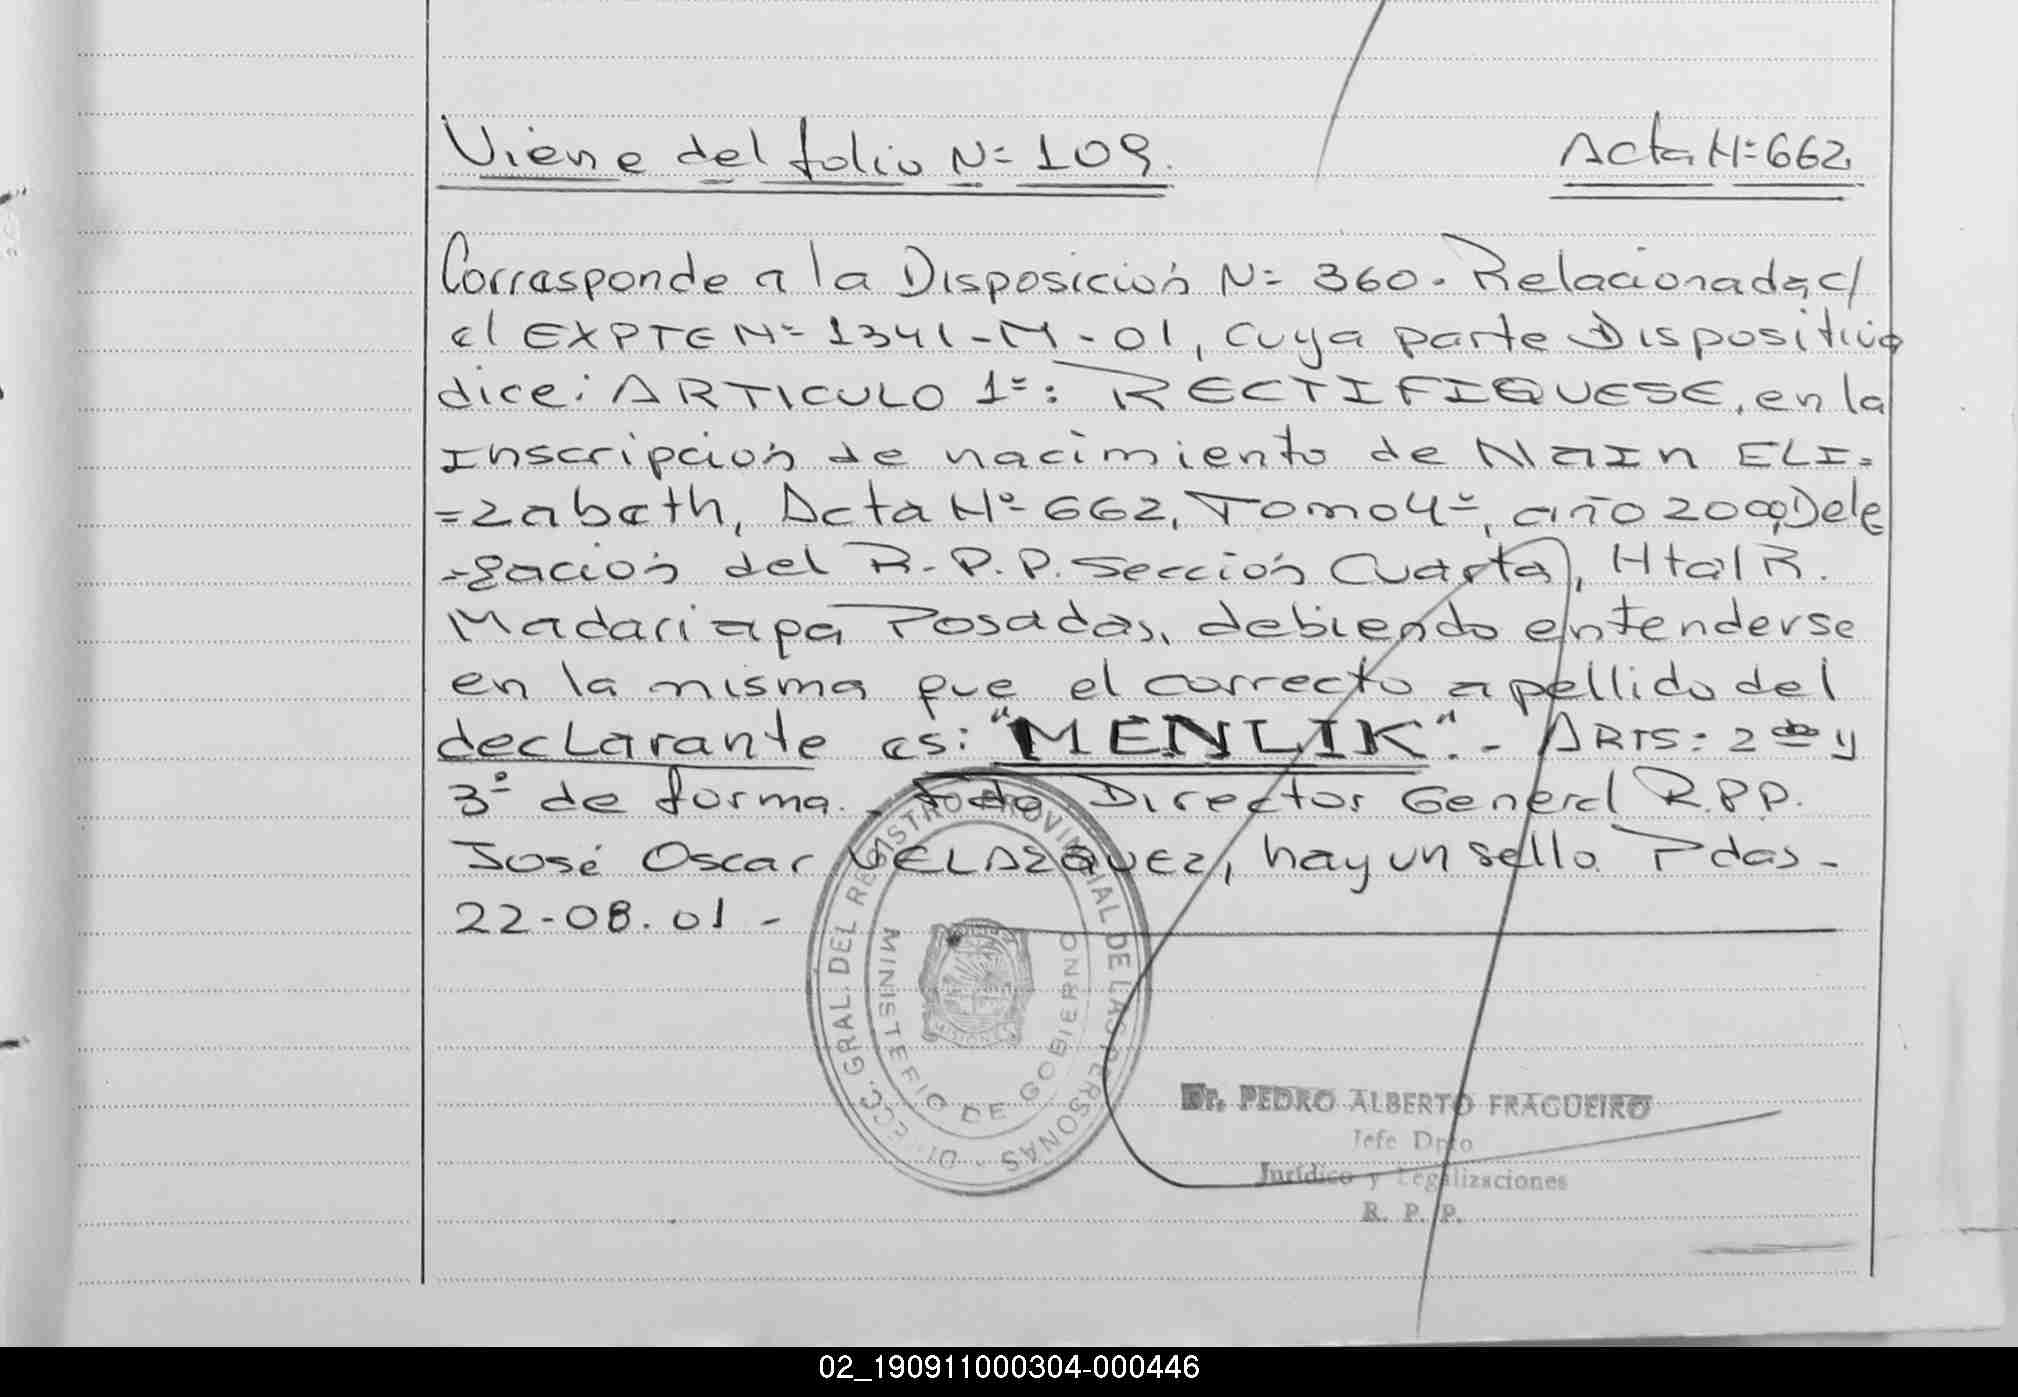 Viene del folio Nº 109.
Acta Nº 662.
Corresponde a la Disposición Nº 360. Relacionada c/
el EXPTE Nº 1341-M-01, cuya parte Dispositiva
dice: ARTICULO 1º: RECTIFIQUESE, en la
Inscripción de nacimiento de NaIn ELI=
=zabeth, Acta Nº 662, Tomo 4º, año 2000, Dele
=gación del R.P.P. Sección Cuarta, Htal R.
Madariaga Posadas, debiendo entenderse
en la misma que el correcto apellido del
decLarante es: "MENLIK".- ARTS: 2º y
3º de forma.- fdo Director General R.P.P.
José Oscar VELAZQUEZ, hay un sello. Pdas-
22-08.01-
DIRECC. GRAL. DEL REGISTRO PROVINCIAL DE LAS PERSONAS -
MINISTERIO DE GOBIERNO
MISIONES
Dr. PEDRO ALBERTO FRAGUEIRO
Jefe Dpto
Jurídico y Legalizaciones
R. P. P.
02_190911000304-000446